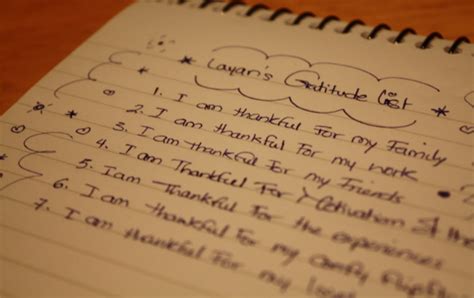 Layan's Gratitude List
1. I am thankful For my Family
2. I am thankful For my work
3. I am thankful For my Friends
4. I am Thankful For Motivation &
5. I am Thankful For the experiences
6. I am thankful For my comfy
7. I am thankful For my